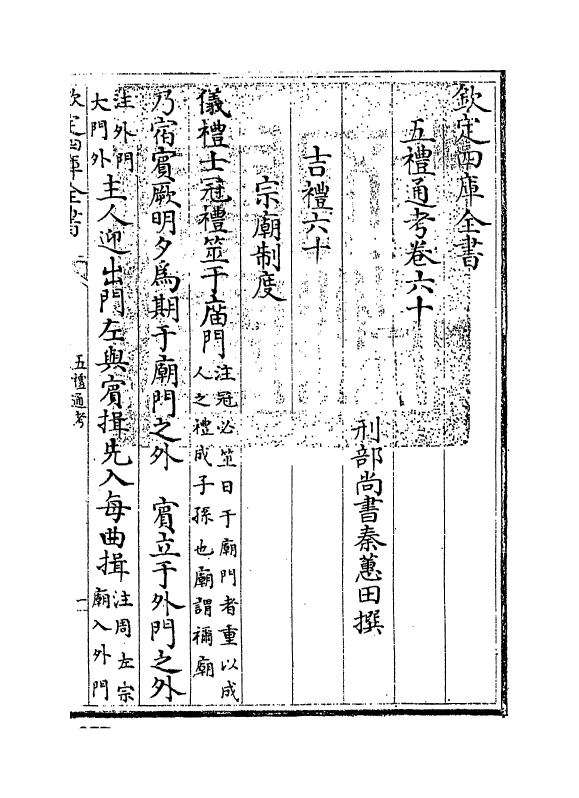 欽定四庫全書
五禮通考卷六十
刑部尚書秦蕙田撰
吉禮六十
宗廟制度
儀禮士冠禮筮于庿門注冠必筮日于廟門者重以成人之禮成子孫也廟謂禰廟
乃宿賓厥明夕為期于廟門之外 賓立于外門之外
注外門大門外主人迎出門左與賓揖先入每曲揖注周左宗廟入外門
欽定四庫全書
五禮通考
一